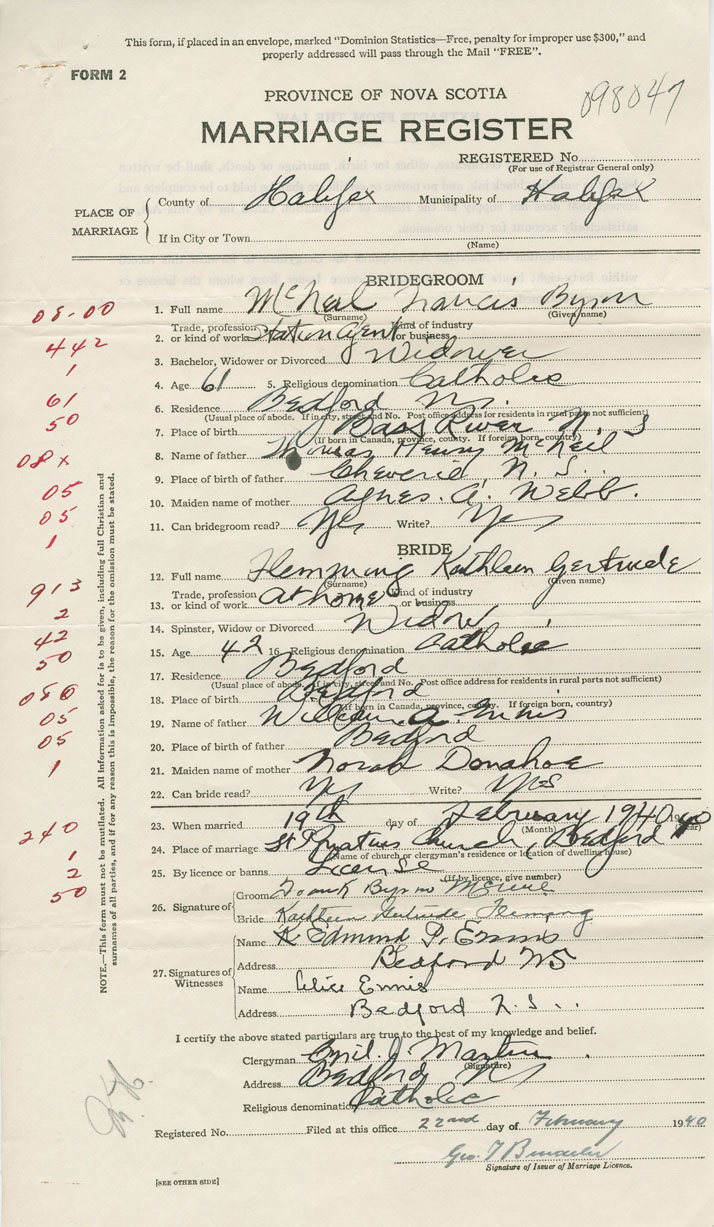 This form, if placed in an envelope, marked "Dominion Statistics—Free, penalty for improper use $300," and
properly addressed will pass through the Mail "FREE".
FORM 2
098047
PROVINCE OF NOVA SCOTIA
MARRIAGE REGISTER
REGISTERED No.
(For use of Registrar General only)
PLACE OF MARRIAGE
County of Halifax Municipality of Halifax
If in City or Town
(Name)
BRIDEGROOM
08-00
1. Full name McNeil Francis Byron
(Surname) (Given name)
442
2. Trade, profession or kind of work Station agent Kind of industry or business
1
3. Bachelor, Widower or Divorced Widower
4. Age 61 5. Religious denomination Catholic
61
6. Residence Bedford N.S.
(Usual place of abode. If in city, street and No. Post office address for residents in rural parts not sufficient)
50
7. Place of birth Bass River N. S
(If born in Canada, province, county. If foreign born, country)
08x
8. Name of father Thomas Henry McNeil
05
9. Place of birth of father Cheverie, N. S.
05
10. Maiden name of mother Agnes. A. Webb.
1
11. Can bridegroom read? Yes Write? Yes
BRIDE
12. Full name Flemming Kathleen Gertrude
(Surname) (Given name)
913
13. Trade, profession or kind of work At home Kind of industry or business
2
14. Spinster, Widow or Divorced Widow
42
15. Age 42 16. Religious denomination Catholic
50
17. Residence Bedford
(Usual place of abode. If in city, street and No. Post office address for residents in rural parts not sufficient)
18. Place of birth Bedford
(If born in Canada, province, county. If foreign born, country)
05
19. Name of father William A. Ennis
05
20. Place of birth of father Bedford
1
21. Maiden name of mother Norah Donahoe
22. Can bride read? Yes Write? Yes
23. When married 19th day of February 1940
(Month) (Year)
240
24. Place of marriage St Ignatius Church, Bedford
(Name of church or clergyman's residence or location of dwelling house)
1
25. By licence or banns License
(If by licence, give number)
2
50
26. Signature of
Groom Byron
Bride Kathleen Gertrude Flemming
27. Signatures of Witnesses
Name Edmund P. Ennis
Address Bedford NS
Name Alice Ennis
Address Bedford N.S..
I certify the above stated particulars are true to the best of my knowledge and belief.
Clergyman Emil. J. Martin
(Signature)
Address Bedford NS
Religious denomination Catholic
Registered No. Filed at this office 22nd day of February 1940
Geo. T
Signature of Issuer of Marriage Licence.
[SEE OTHER SIDE]
NOTE.—This form must not be mutilated. All information asked for is to be given, including full Christian and
surnames of all parties, and if for any reason this is impossible, the reason for the omission must be stated.